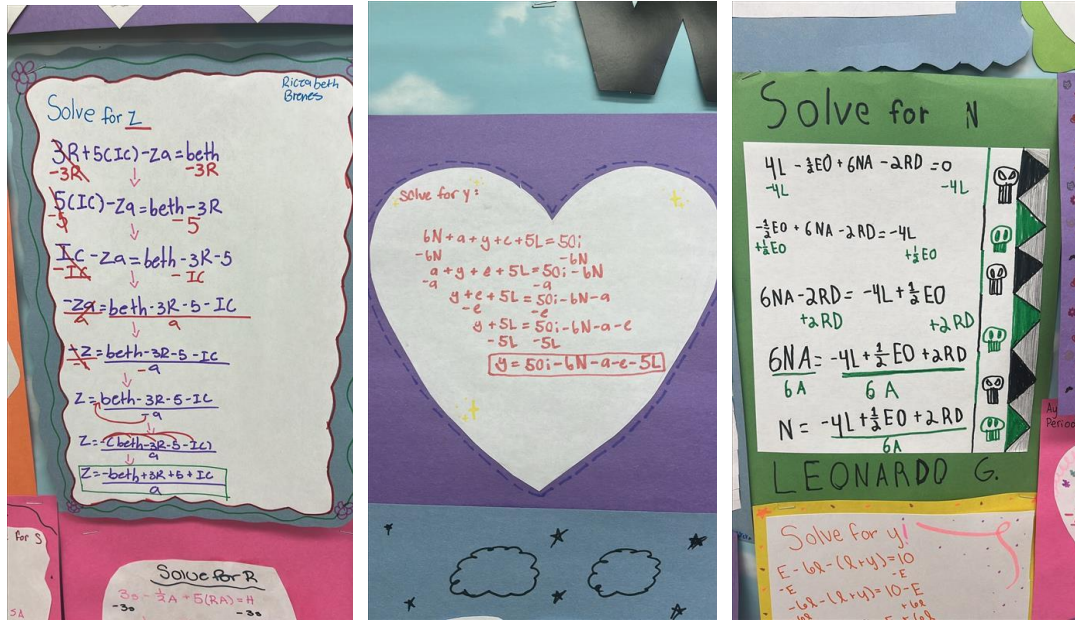 Riccabeth
Brenes
Solve for Z
3R+5(IC)-Za=beth
-3R -3R
5(IC)-Za=beth-3R
-5 -5
IC-Za=beth-3R-5
-IC -IC
-Za=beth-3R-5-IC
a a
-Z=beth-3R-5-IC
-a
Z=beth-3R-5-IC
-a
Z=-(beth-3R-5-IC)
a
Z=-beth+3R+5+IC
a
for S
SA
Solve for R
3s-½A+5(RA)=H
-3s -3s
W
solve for y:
6N+a+y+e+5L=50i
-6N -6N
a+y+e+5L=50i-6N
-a -a
y+e+5L=50i-6N-a
-e -e
y+5L=50i-6N-a-e
-5L -5L
y=50i-6N-a-e-5L
Solve for N
4L-½EO+6NA-2RD=0
-4L -4L
-½EO+6NA-2RD=-4L
+½EO +½EO
6NA-2RD=-4L+½EO
+2RD +2RD
6NA=-4L+½EO+2RD
6A 6A
N=-4L+½EO+2RD
6A
LEONARDO G.
Ay
Period
Solve for y!
E-6l-(l+y)=10
-E -E
-6l-(l+y)=10-E
+6l